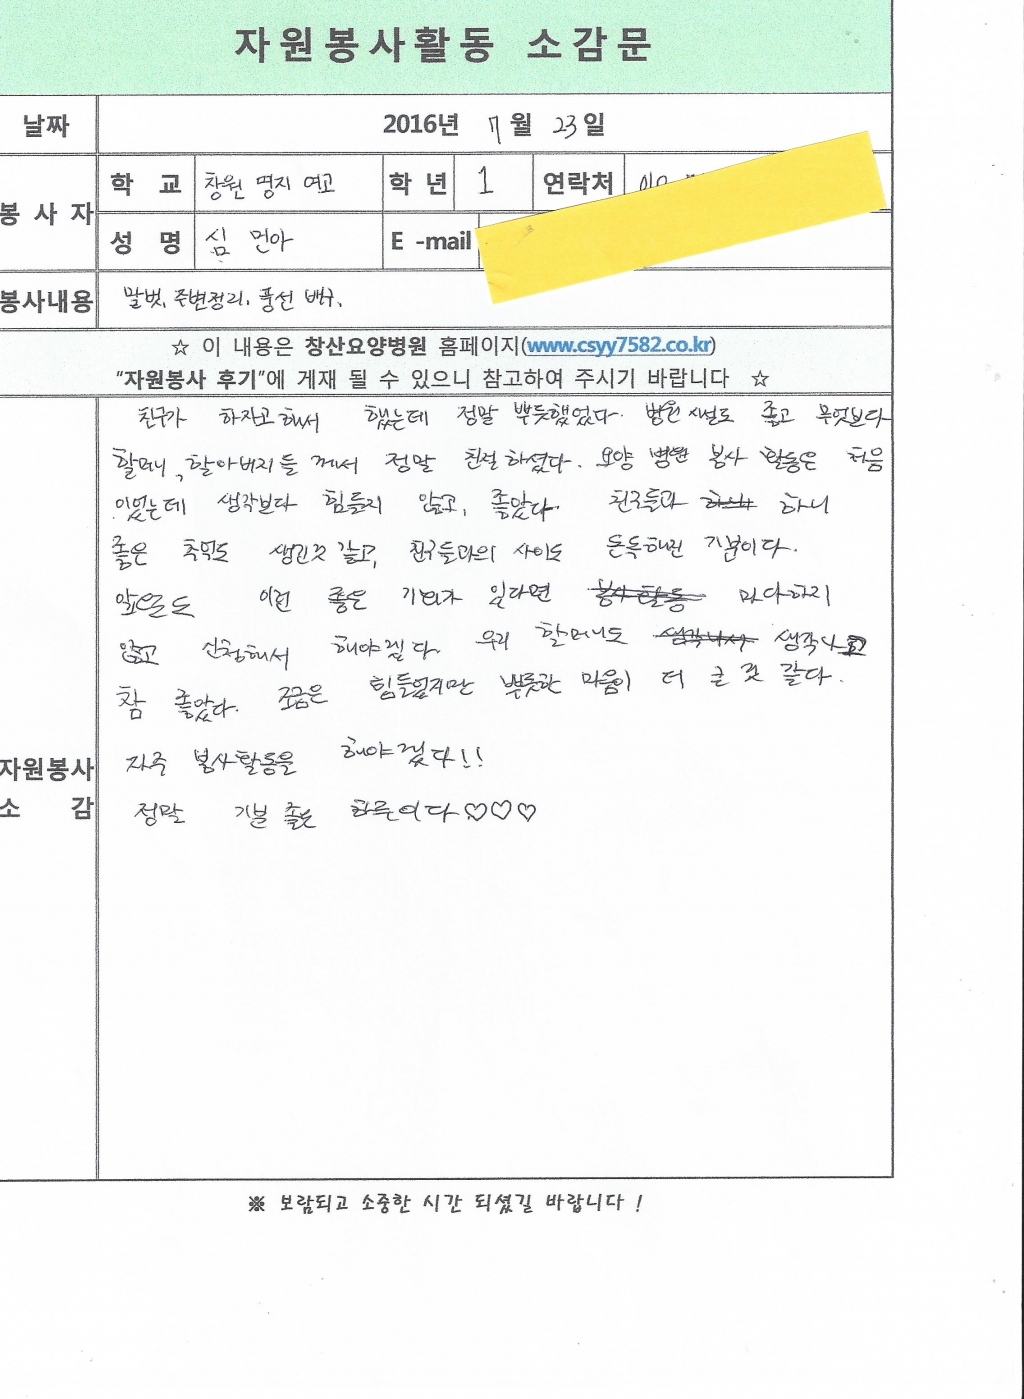 자원봉사활동 소감문
날짜 2016년 7월 23일
봉사자 학교 창원 명지 여고 학년 1 연락처 010
성명 심 민아 E-mail
봉사내용 말벗, 주변정리, 풍선 배구,
☆ 이 내용은 창산요양병원 홈페이지(www.csyy7582.co.kr)
"자원봉사 후기"에 게재 될 수 있으니 참고하여 주시기 바랍니다 ☆
친구가 하자고해서 했는데 정말 뿌듯했었다. 병원 시설도 좋고 무엇보다
할머니, 할아버지들 께서 정말 친절하셨다. 요양 병원 봉사 활동은 처음
이었는데 생각보다 힘들지 않고, 좋았다. 친구들과 하니
좋은 추억도 생긴것 같고, 친구들과의 사이도 돈독해진 기분이다.
앞으로도 이런 좋은 기회가 있다면 봉사활동 마다하지
않고 신청해서 해야겠다. 우리 할머니도 생각나서 생각나고
참 좋았다. 조금은 힘들었지만 뿌듯한 마음이 더 큰 것 같다.
자주 봉사활동을 해야겠다!!
정말 기분 좋은 하루이다♡♡♡
자원봉사
소 감
※ 보람되고 소중한 시간 되셨길 바랍니다 !